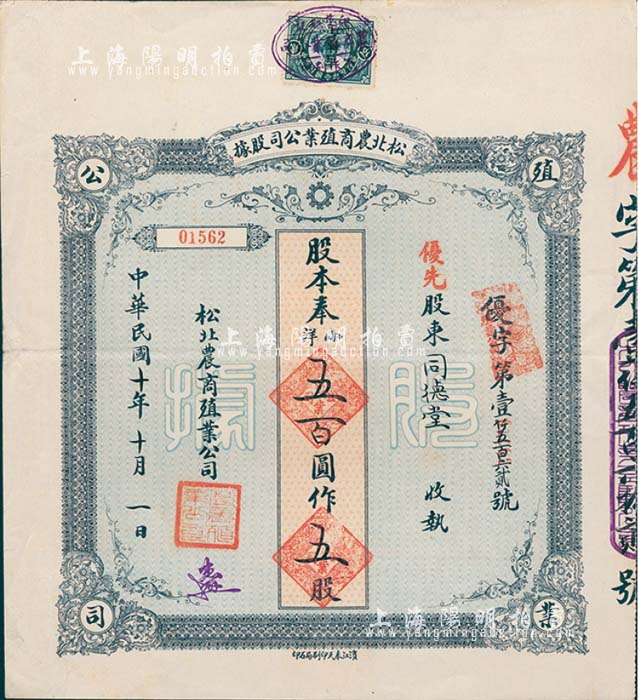 上海陽明拍賣
www.yangmingauction.com
松北農商殖業公司股據
殖
業
公
司
農字第
號
優字第壹仟五百六十貳號
優先股東同德堂 收執
股本奉小洋五百圓作五股
股據
01562
松北農商殖業公司
中華民國十年十月一日
濱江泰文印刷局石印